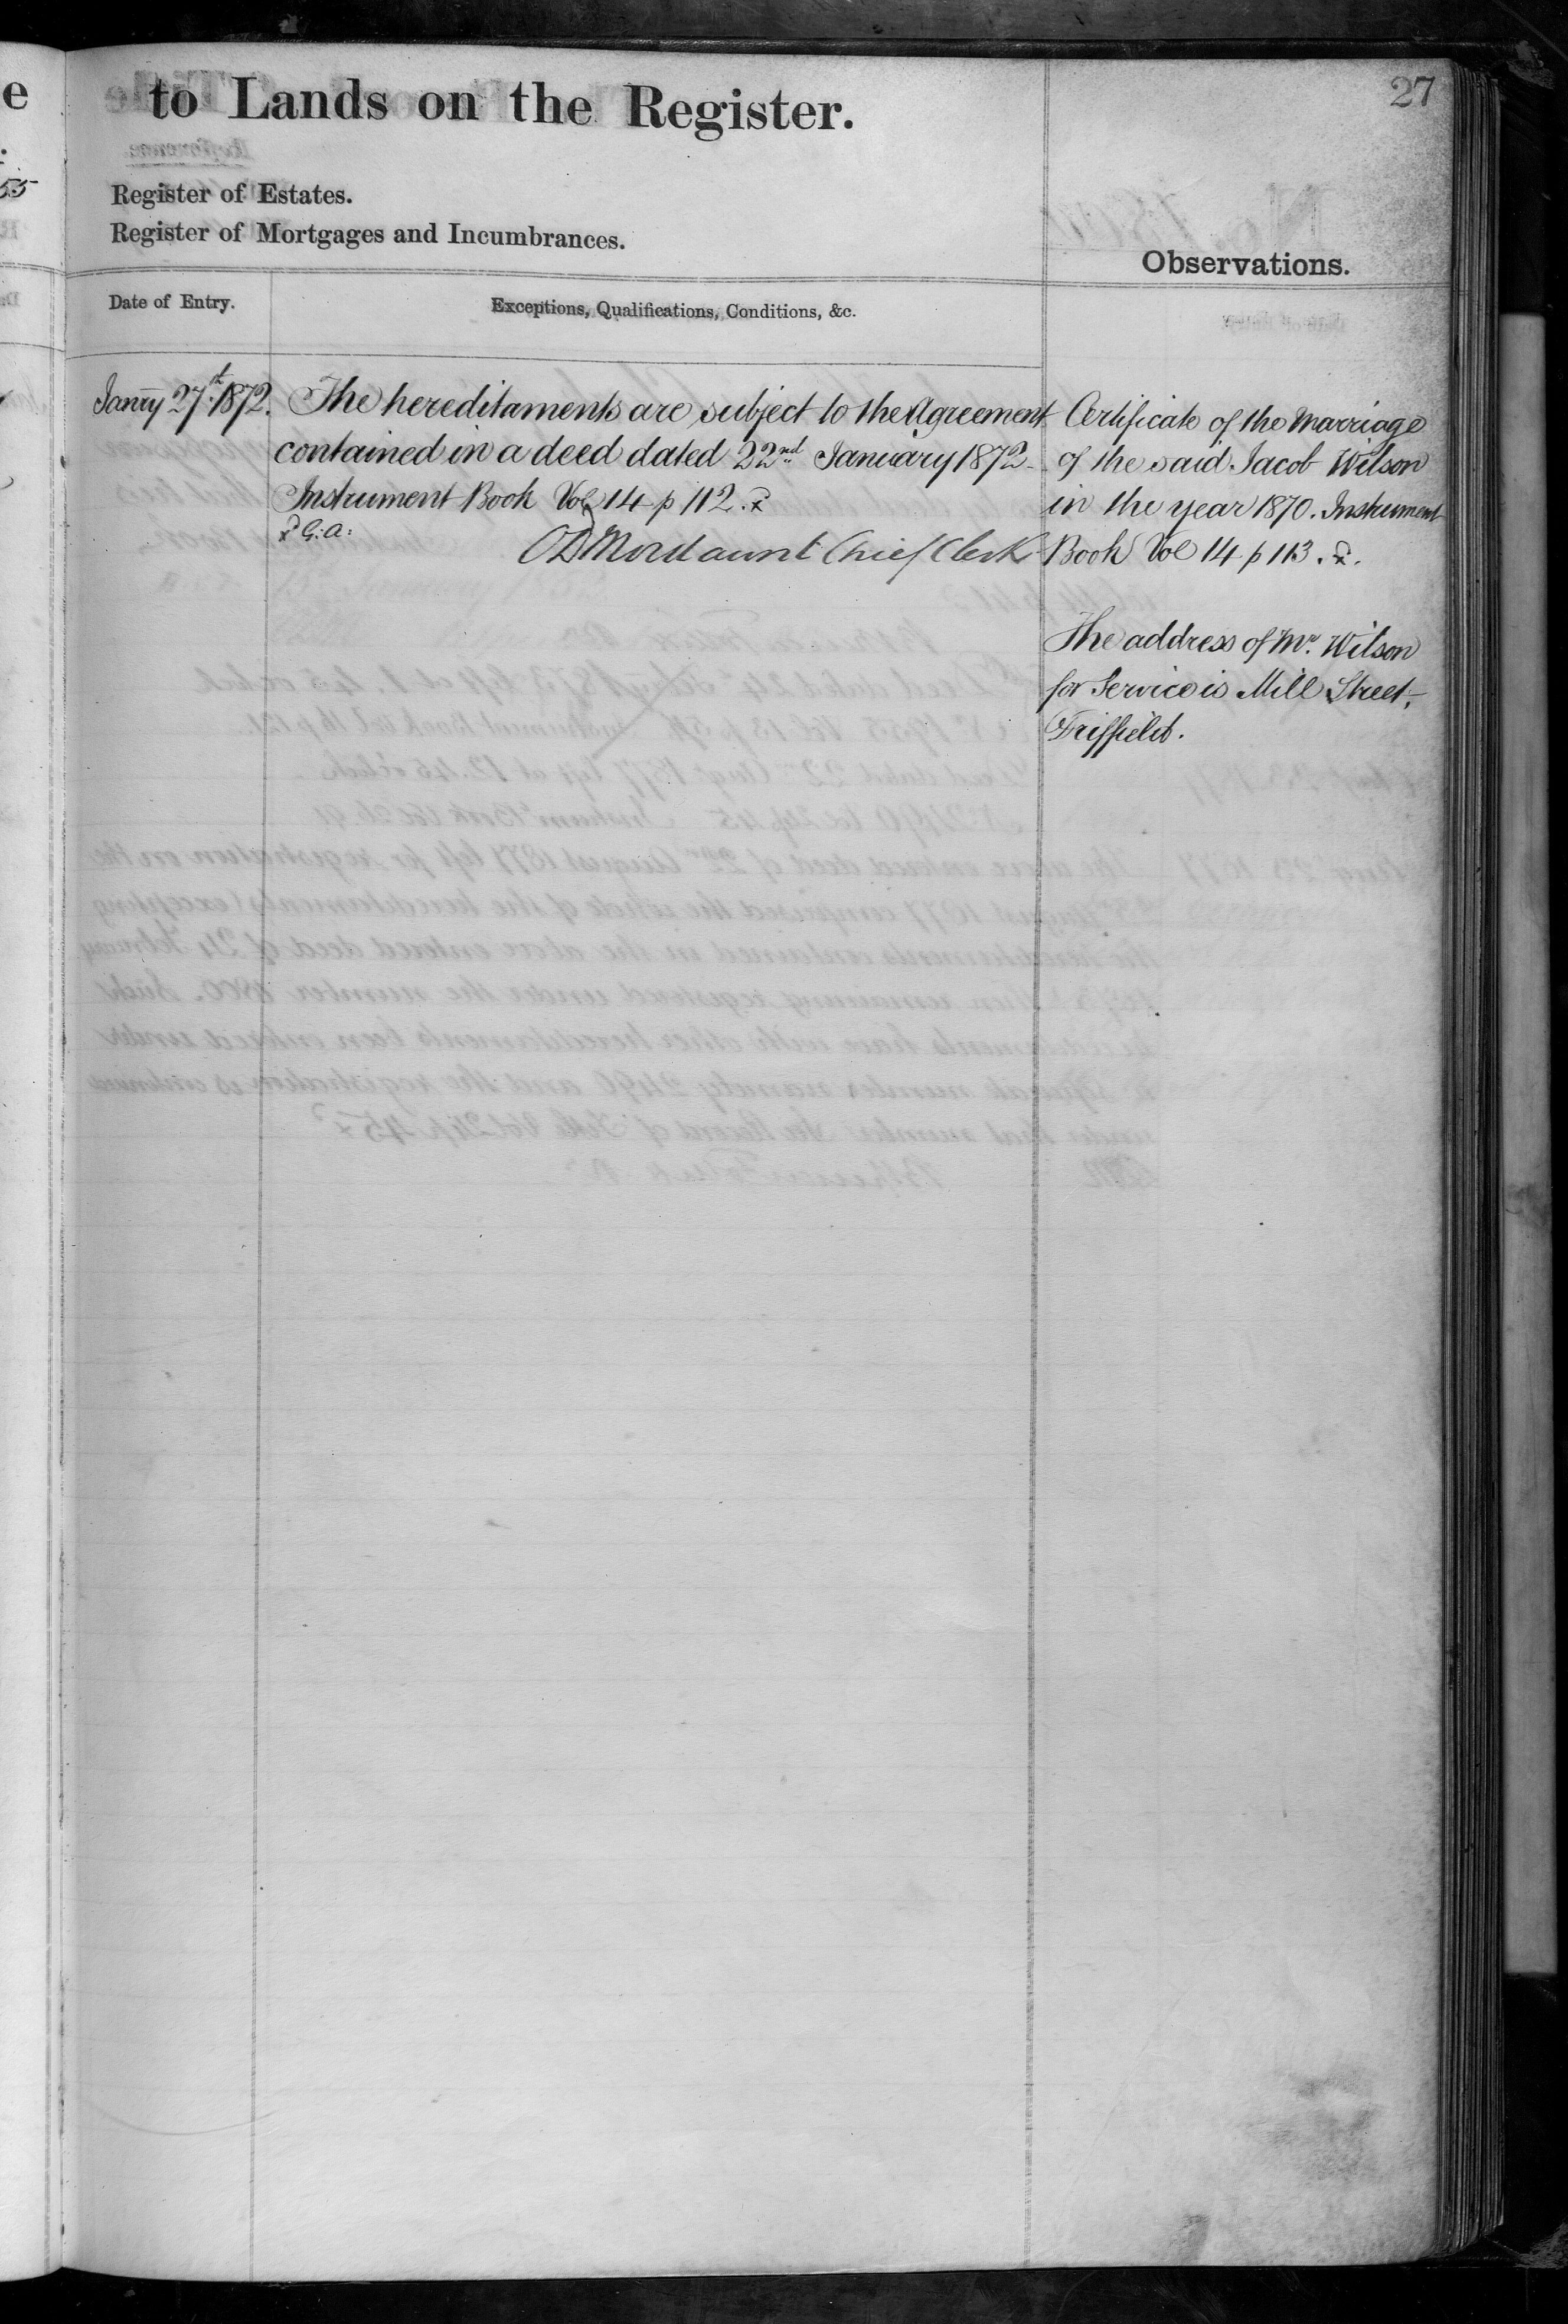 27
to Lands on the Register.
Register of Estates.
Register of Mortgages and Incumbrances.
Observations.
Date of Entry.
Exceptions, Qualifications, Conditions, &c.
Janry 27th 1872.
The hereditaments are subject to the Agreement
contained in a deed dated 22nd January 1872
Instrument Book Vol 14 p 112.
G. a.
Mordaunt Chief Clerk
Certificate of the Marriage
of the said Jacob Wilson
in the year 1870. Instrument
Book Vol 14 p 113.
The address of Mr. Wilson
for Service is Mill Street,
Driffield.
e
55